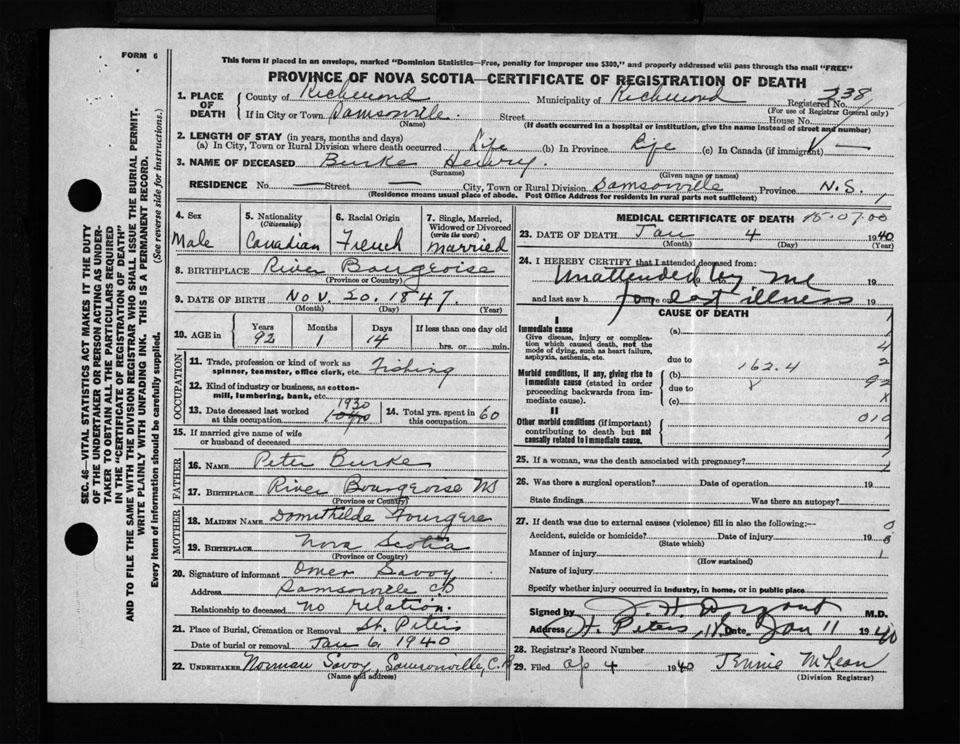 FORM 6
This form if placed in an envelope, marked "Dominion Statistics—Free, penalty for improper use $300," and properly addressed will pass through the mail "FREE"
PROVINCE OF NOVA SCOTIA—CERTIFICATE OF REGISTRATION OF DEATH
SEC. 46—VITAL STATISTICS ACT MAKES IT THE DUTY
OF THE UNDERTAKER OR PERSON ACTING AS UNDER-
TAKER TO OBTAIN ALL THE PARTICULARS REQUIRED
IN THE "CERTIFICATE OF REGISTRATION OF DEATH"
AND TO FILE THE SAME WITH THE DIVISION REGISTRAR WHO SHALL ISSUE THE BURIAL PERMIT.
WRITE PLAINLY WITH UNFADING INK. THIS IS A PERMANENT RECORD.
Every item of information should be carefully supplied. (See reverse side for instructions.)
1. PLACE OF DEATH County of Richmond Municipality of Richmond Registered No. 238
(For use of Registrar General only)
If in City or Town Samsonville. Street House No.
(Name) (If death occurred in a hospital or institution, give the name instead of street and number)
2. LENGTH OF STAY (in years, months and days)
(a) In City, Town or Rural Division where death occurred Life (b) In Province Life (c) In Canada (if immigrant) —
3. NAME OF DECEASED Burke Henry.
(Surname) (Given name or names)
RESIDENCE No. — Street — City, Town or Rural Division Samsonville Province N.S.
(Residence means usual place of abode. Post Office Address for residents in rural parts not sufficient)
4. Sex Male
5. Nationality (Citizenship) Canadian
6. Racial Origin French
7. Single, Married, Widowed or Divorced (write the word) Married
8. BIRTHPLACE River Bourgeoise
(Province or Country)
9. DATE OF BIRTH Nov. 20. 1847.
(Month) (Day) (Year)
10. AGE in Years 92 Months 1 Days 14 If less than one day old hrs. or min.
OCCUPATION
11. Trade, profession or kind of work as spinner, teamster, office clerk, etc. Fishing
12. Kind of industry or business, as cotton-mill, lumbering, bank, etc.
13. Date deceased last worked at this occupation 1930
14. Total yrs. spent in this occupation 60
15. If married give name of wife or husband of deceased
FATHER
16. NAME Peter Burke
17. BIRTHPLACE River Bourgeoise NS
(Province or Country)
MOTHER
18. MAIDEN NAME Domithilde Fourgere
19. BIRTHPLACE Nova Scotia
(Province or Country)
20. Signature of informant Omer Savoy
Address Samsonville CB
Relationship to deceased no relation.
21. Place of Burial, Cremation or Removal St. Peters
Date of burial or removal Jan 6 1940
22. UNDERTAKER Norman Savoy, Samsonville, C.B
(Name and address)
MEDICAL CERTIFICATE OF DEATH 15.07.00
23. DATE OF DEATH Jan 4 1940
(Month) (Day) (Year)
24. I HEREBY CERTIFY that I attended deceased from:
Unattended by me 19
and last saw h for last illness 19
CAUSE OF DEATH
I
Immediate cause
Give disease, injury or complication which caused death, not the mode of dying, such as heart failure, asphyxia, asthenia, etc.
(a)
due to
Morbid conditions, if any, giving rise to immediate cause (stated in order proceeding backwards from immediate cause).
(b) 162.4
due to
(c)
II
Other morbid conditions (if important) contributing to death but not causally related to immediate cause.
1
4
2
92
X
010
1
25. If a woman, was the death associated with pregnancy?
26. Was there a surgical operation? Date of operation 19
State findings Was there an autopsy?
27. If death was due to external causes (violence) fill in also the following:—
Accident, suicide or homicide? Date of injury 19
(State which)
Manner of injury
(How sustained)
Nature of injury
Specify whether injury occurred in industry, in home, or in public place
Signed by M.D.
Address St. Peters Date Jan 11 1940
28. Registrar's Record Number
29. Filed 4 1940 Jennie McLean
(Division Registrar)